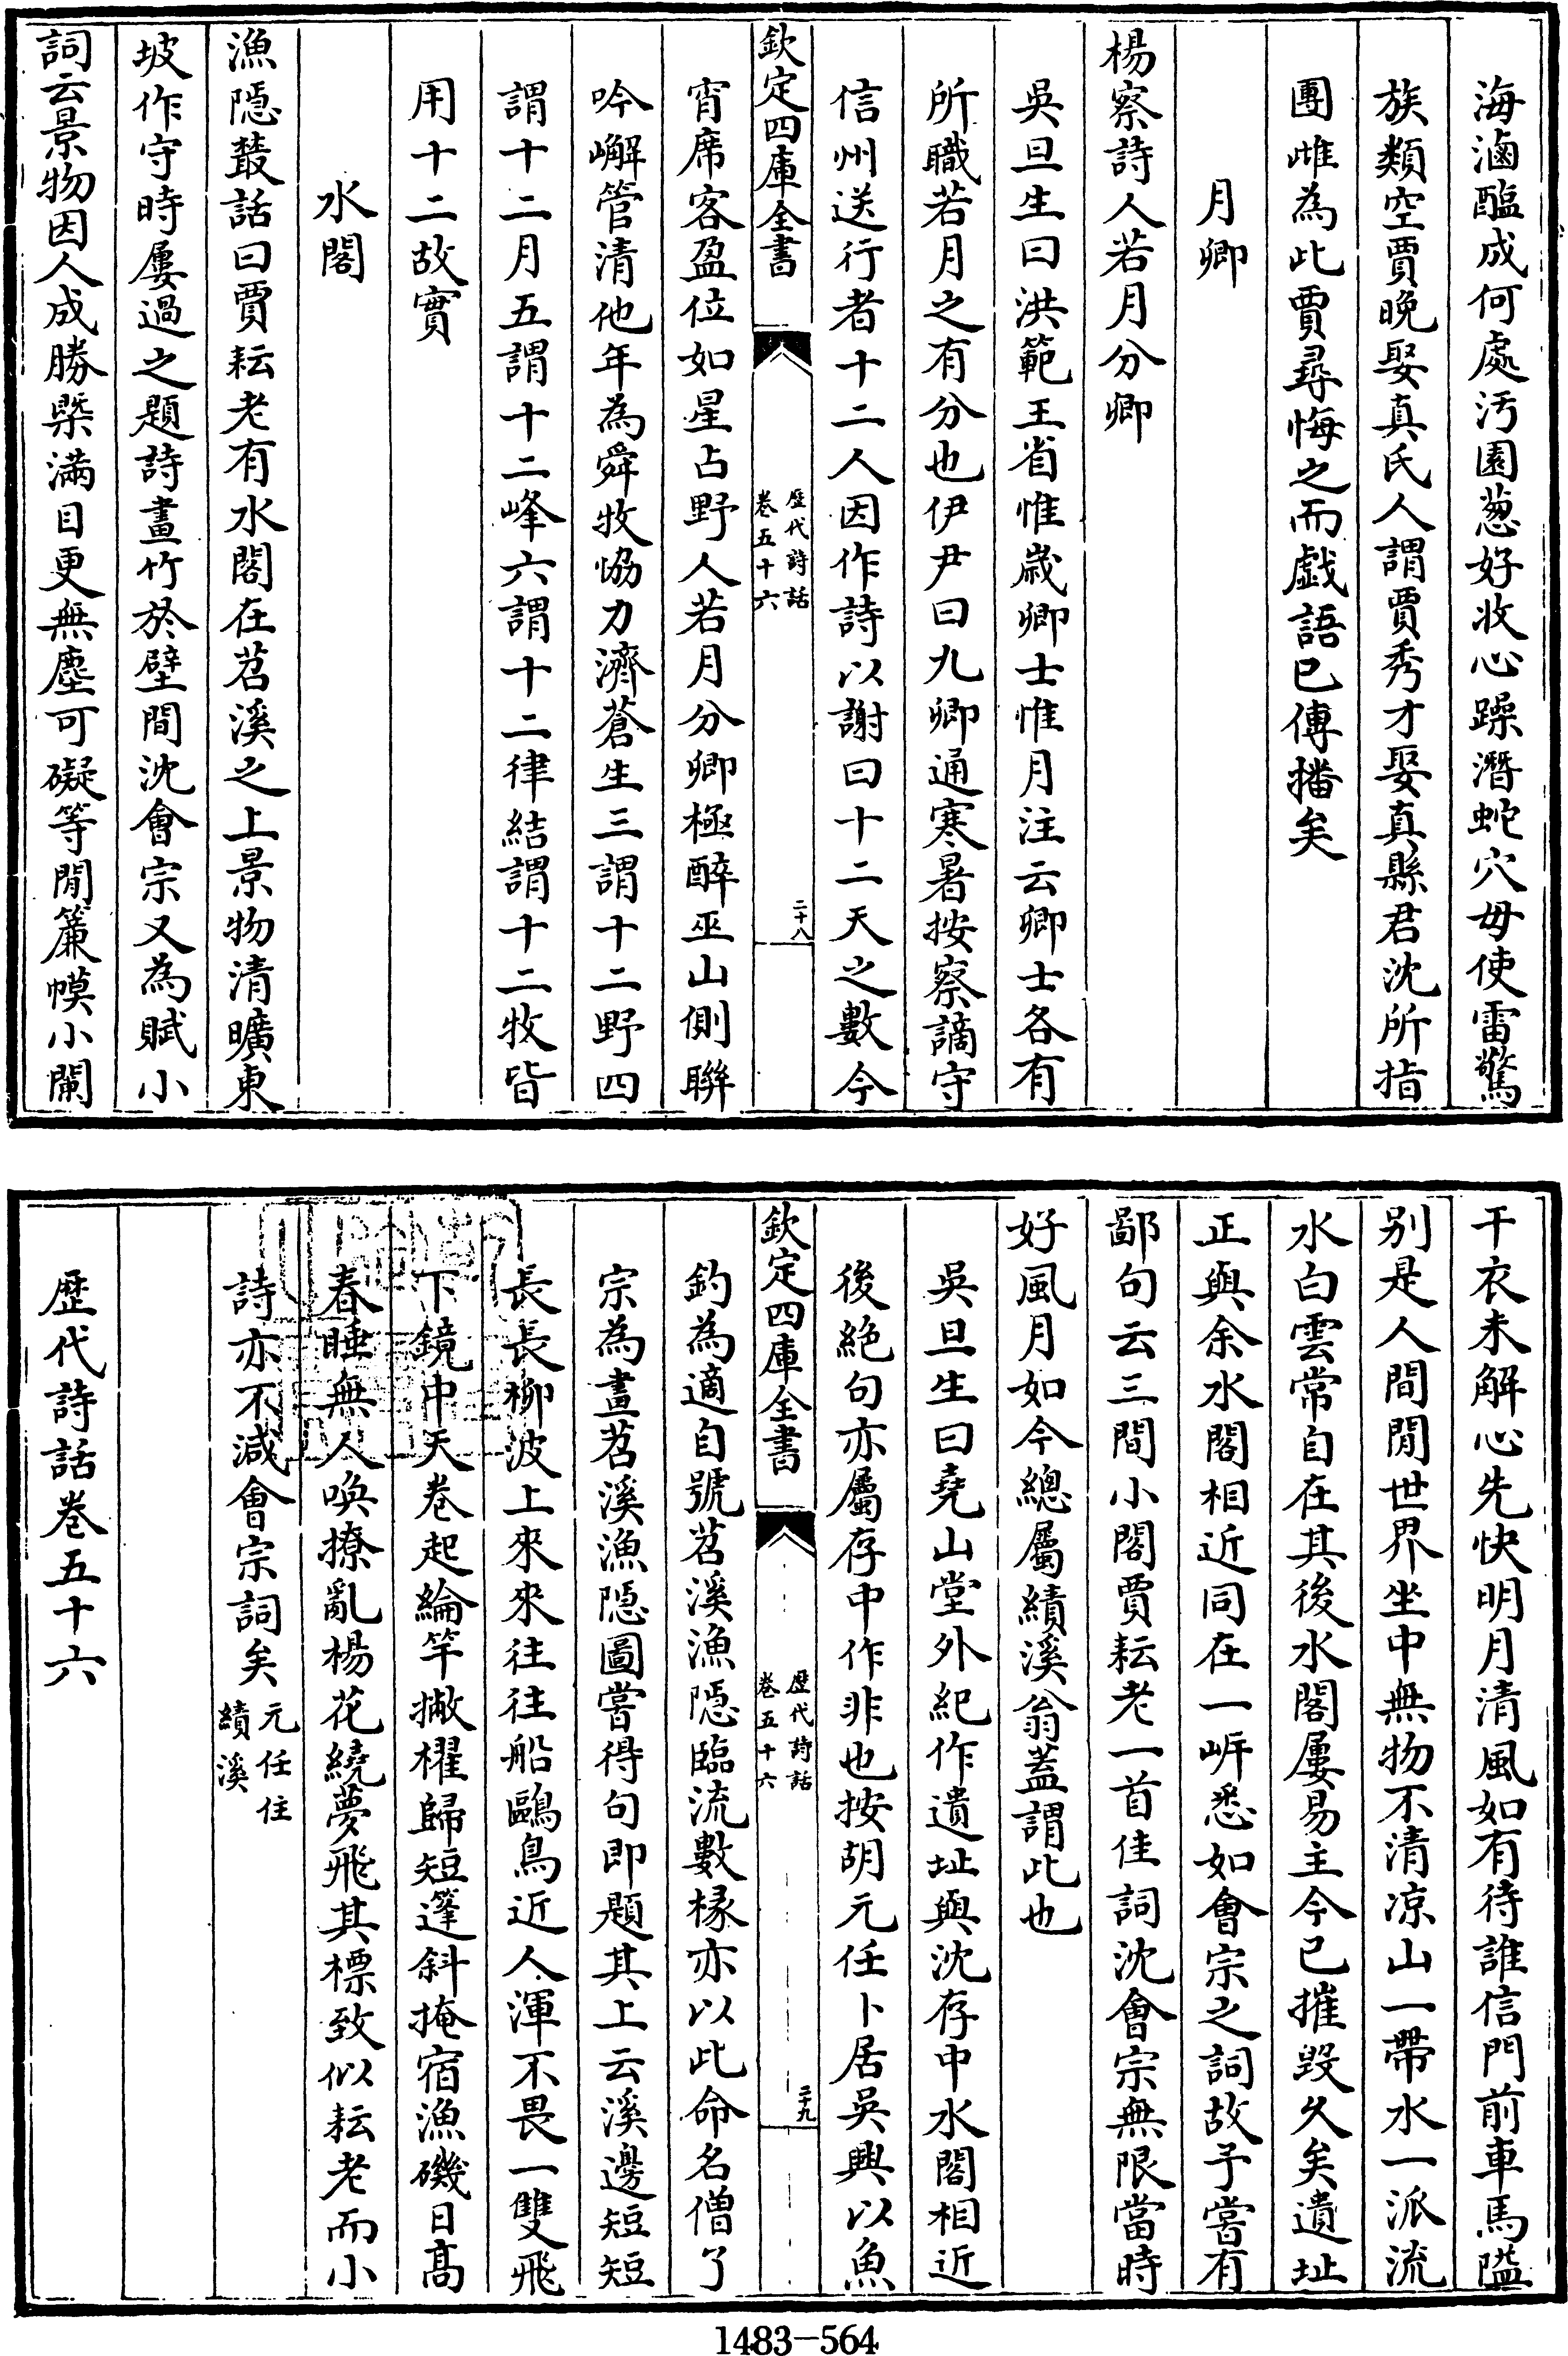 海滷醢成何處汚園葱好收心躁潛蛇穴毋使雷驚
族類空賈晚娶真氏人謂賈秀才娶真縣君沈所指
團雌為此賈尋悔之而戲語已傳播矣
月卿
楊察詩人若月分卿
吳旦生曰洪範王省惟歲卿士惟月注云卿士各有
所職若月之有分也伊尹曰九卿通寒暑按察謫守
信州送行者十二人因作詩以謝曰十二天之數今
欽定四庫全書
歷代詩話
卷五十六
二十八
宵席客盈位如星占野人若月分卿極醉巫山側聯
吟嶰管清他年為舜牧恊力濟蒼生三謂十二野四
謂十二月五謂十二峰六謂十二律結謂十二牧皆
用十二故實
水閣
漁隱叢話曰賈耘老有水閣在苕溪之上景物清曠東
坡作守時屢過之題詩畫竹於壁間沈會宗又為賦小
詞云景物因人成勝槩滿目更無塵可礙等閒簾幙小闌
干衣未解心先快明月清風如有待誰信門前車馬隘
别是人間閒世界坐中無物不清凉山一帶水一派流
水白雲常自在其後水閣屢易主今已摧毀久矣遺址
正與余水閣相近同在一岍悉如會宗之詞故予嘗有
鄙句云三間小閣賈耘老一首佳詞沈會宗無限當時
好風月如今總屬績溪翁蓋謂此也
吳旦生曰堯山堂外紀作遺址與沈存中水閣相近
後絶句亦屬存中作非也按胡元任卜居吳興以魚
欽定四庫全書
歷代詩話
卷五十六
二十九
釣為適自號苕溪漁隱臨流數椽亦以此命名僧了
宗為畫苕溪漁隱圖嘗得句即題其上云溪邊短短
長長柳波上來來往往船鷗鳥近人渾不畏一雙飛
下鏡中天卷起綸竿撇櫂歸短篷斜掩宿漁磯日高
春睡無人喚撩亂楊花繞夢飛其標致似耘老而小
詩亦不減會宗詞矣元任住
績溪
歷代詩話卷五十六
1483-564